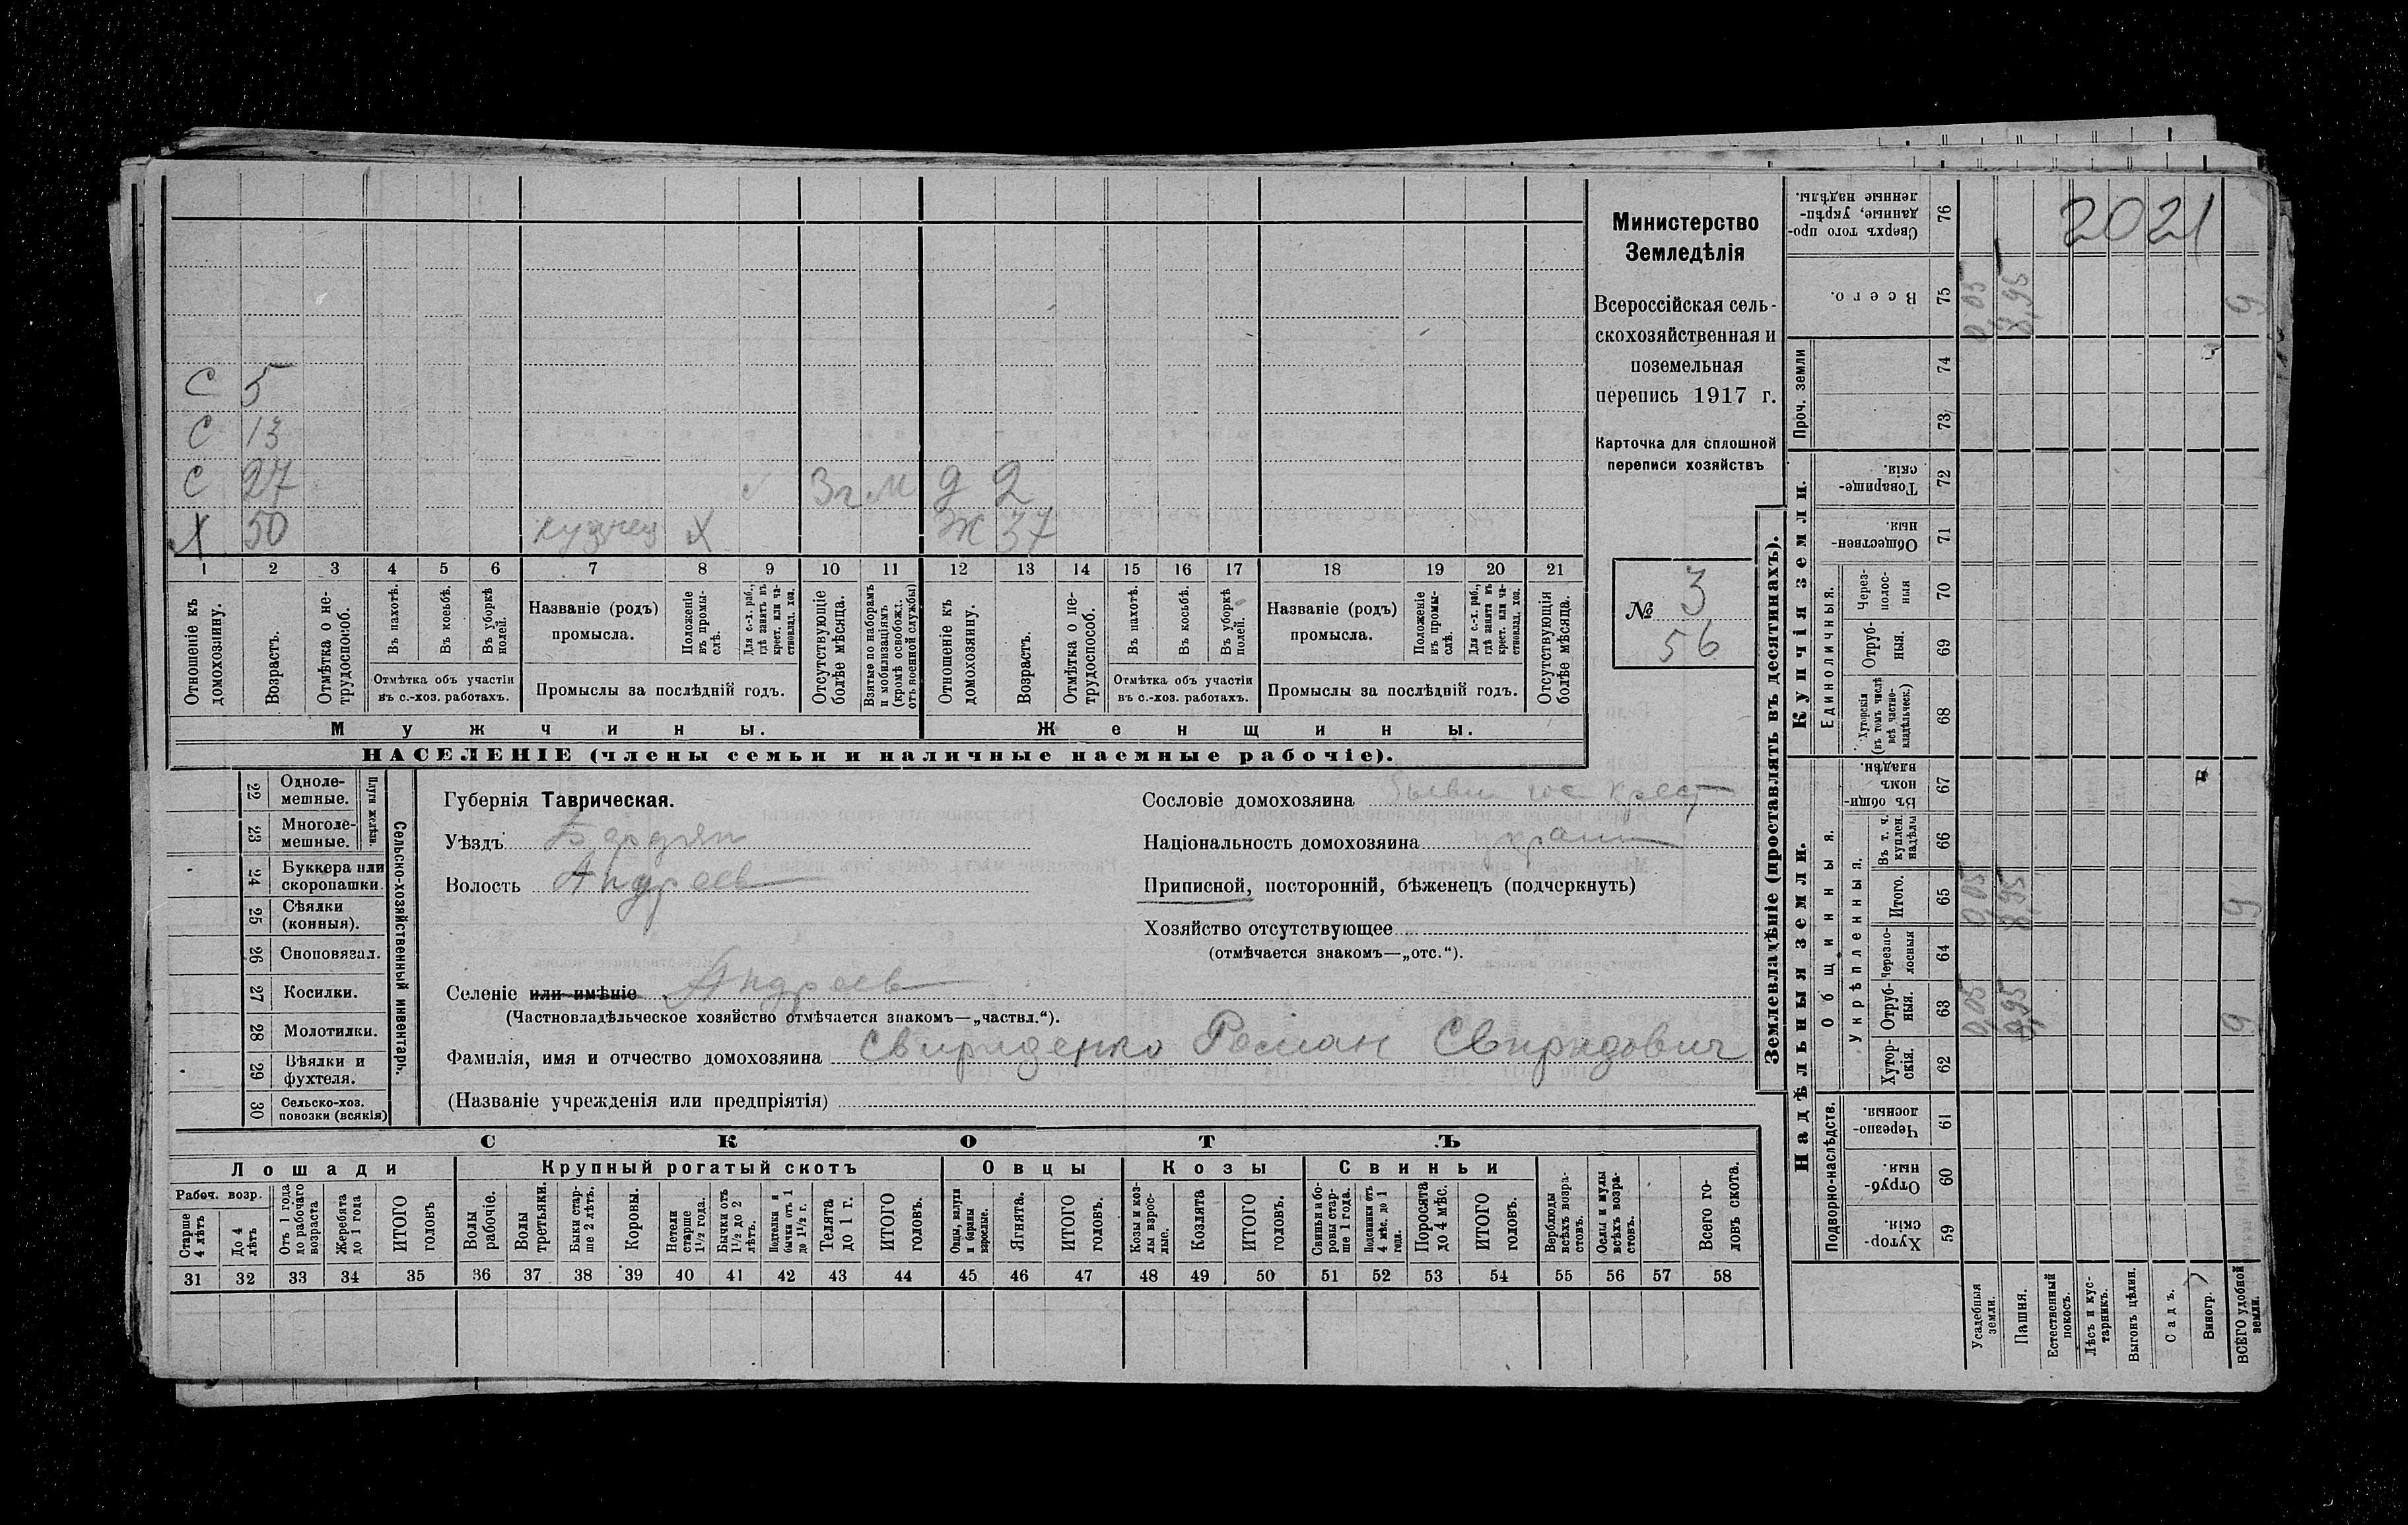 С 5
С 13
С 27 Зг. м д 2
Х 50 кузнец х ж 37
1 2 3 4 5 6 7 8 9 10 11 12 13 14 15 16 17 18 19 20 21
Отношеніе къ домохозяину.
Возрастъ.
Отмѣтка о нетрудоспособ.
Въ пахотѣ.
Въ косьбѣ.
Въ уборкѣ полей.
Отмѣтка объ участіи
въ с.-хоз. работахъ.
Названіе (родъ)
промысла.
Положеніе въ промыслѣ.
Для с.-х. раб., гдѣ занятъ въ крест. или частновлад. хоз.
Промыслы за послѣдній годъ.
Отсутствующіе болѣе мѣсяца.
Взятые по наборамъ и мобилизаціямъ (кромѣ освобожд. отъ военной службы)
Отношеніе къ домохозяину.
Возрастъ.
Отмѣтка о нетрудоспособ.
Въ пахотѣ.
Въ косьбѣ.
Въ уборкѣ полей.
Отмѣтка объ участіи
въ с.-хоз. работахъ.
Названіе (родъ)
промысла.
Положеніе въ промыслѣ.
Для с.-х. раб., гдѣ занята въ крест. или частновлад. хоз.
Промыслы за послѣдній годъ.
Отсутствующія болѣе мѣсяца.
Мужчины. Женщины.
НАСЕЛЕНІЕ (члены семьи и наличные наемные рабочіе).
Министерство
Земледѣлія
Всероссійская сель-
скохозяйственная и
поземельная
перепись 1917 г.
Карточка для сплошной
переписи хозяйствъ
№ 3
56
22 Одноле-
мешные.
23 Многоле-
мешные.
Плуги желѣзн.
24 Буккера или
скоропашки.
25 Сѣялки
(конныя).
26 Сноповязал.
27 Косилки.
28 Молотилки.
29 Вѣялки и
фухтеля.
30 Сельско-хоз.
повозки (всякія)
Сельско-хозяйственный инвентарь.
Губернія Таврическая.
Уѣздъ Бердян
Волость Андреев
Селеніе или имѣніе Андреев
(Частновладѣльческое хозяйство отмѣчается знакомъ—„частвл.“).
Фамилія, имя и отчество домохозяина Свириденко Роман Свиридович
(Названіе учрежденія или предпріятія)
Сословіе домохозяина бывш гос крест
Національность домохозяина украин
Приписной, посторонній, бѣженецъ (подчеркнуть)
Хозяйство отсутствующее
(отмѣчается знакомъ—„отс.“).
СКОТЪ
Лошади Крупный рогатый скотъ Овцы Козы Свиньи
Рабоч. возр.
Старше 4 лѣтъ
До 4 лѣтъ
Отъ 1 года до рабочаго возраста
Жеребята до 1 года
ИТОГО головъ
Волы рабочіе.
Волы третьяки.
Быки старше 2 лѣтъ.
Коровы.
Нетели старше 1 1/2 года.
Бычки отъ 1 1/2 до 2 лѣтъ.
Подтелки и бычки отъ 1 до 1 1/2 г.
Телята до 1 г.
ИТОГО головъ.
Овцы, валухи и бараны взрослые.
Ягнята.
ИТОГО головъ.
Козы и козлы взрослые.
Козлята
ИТОГО головъ.
Свиньи и боровы старше 1 года.
Подсвинки отъ 4 мѣс. до 1 года.
Поросята до 4 мѣс.
ИТОГО головъ.
Верблюды всѣхъ возрастовъ.
Ослы и мулы всѣхъ возрастовъ.
Всего головъ скота.
31 32 33 34 35 36 37 38 39 40 41 42 43 44 45 46 47 48 49 50 51 52 53 54 55 56 57 58
Землевладѣніе (проставлять въ десятинахъ).
2021
Сверхъ того проданные, укрѣпленные надѣлы. 76
Всего. 75 0,05 8,95 9
Проч. земли
74
73
Купчія земли.
Товарищескія. 72
Общественныя. 71
Единоличныя.
Черезполосныя 70
Отрубныя. 69
Хуторскія (въ томъ числѣ всѣ частновладѣльческ.) 68
Надѣльныя земли.
Общинныя.
Въ общинномъ владѣн. 67
Укрѣпленныя.
Въ т. ч. куплен. надѣлы 66
Итого. 65 0,05 8,95 9
Черезполосныя 64
Отрубныя. 63 0,05 8,95 9
Хуторскія. 62
Подворно-наслѣдств.
Черезполосныя. 61
Отрубныя. 60
Хуторскія. 59
Усадебныя земли.
Пашня.
Естественный покосъ.
Лѣсъ и кустарникъ.
Выгонъ цѣлин.
Садъ.
Виногр.
ВСЕГО удобной земли.